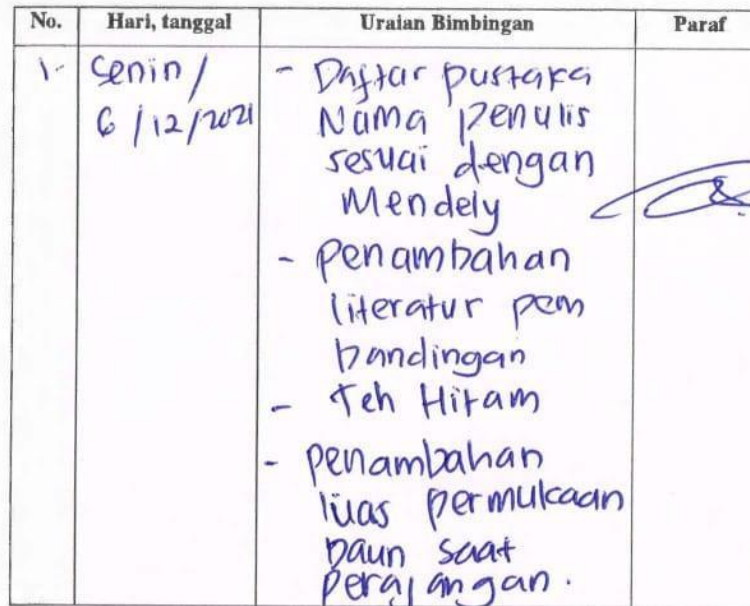 No. Hari, tanggal Uraian Bimbingan Paraf
1. Senin / - Daftar pustaka
6/12/2021 Nama Penulis
sesuai dengan
Mendely
- Penambahan
literatur pem
bandingan
- Teh Hitam
- Penambahan
luas permukaan
Daun saat
Perajangan.